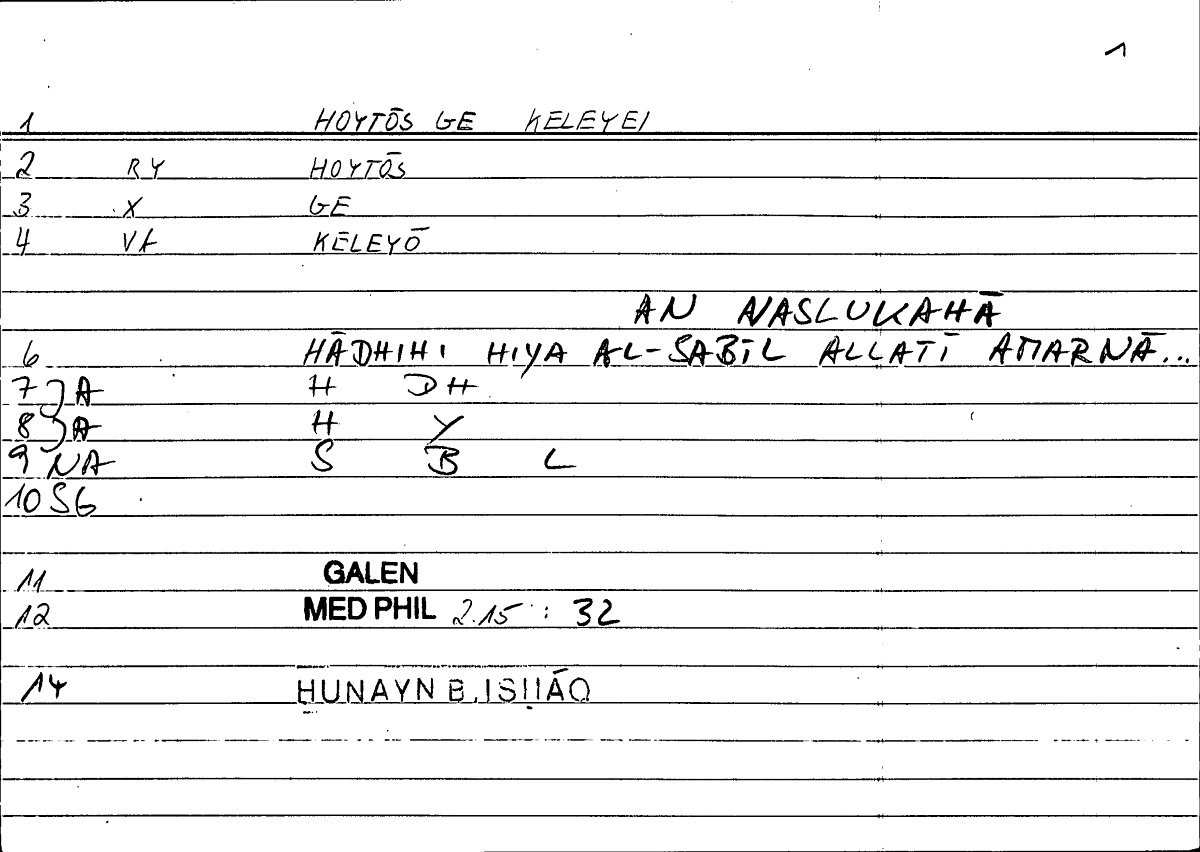 1
1 HOYTŌS GE KELEYEI
2 RY HOYTŌS
3 X GE
4 VA KELEYŌ
AN NASLUKAHĀ
6 HĀDHIHI HIYA AL-SABĪL ALLATĪ AMARNĀ...
7 A H DH
8 A H Y
9 NA S B L
10 SG
11 GALEN
12 MED PHIL 2.15 : 32
14 ḤUNAYN B. ISḤĀQ